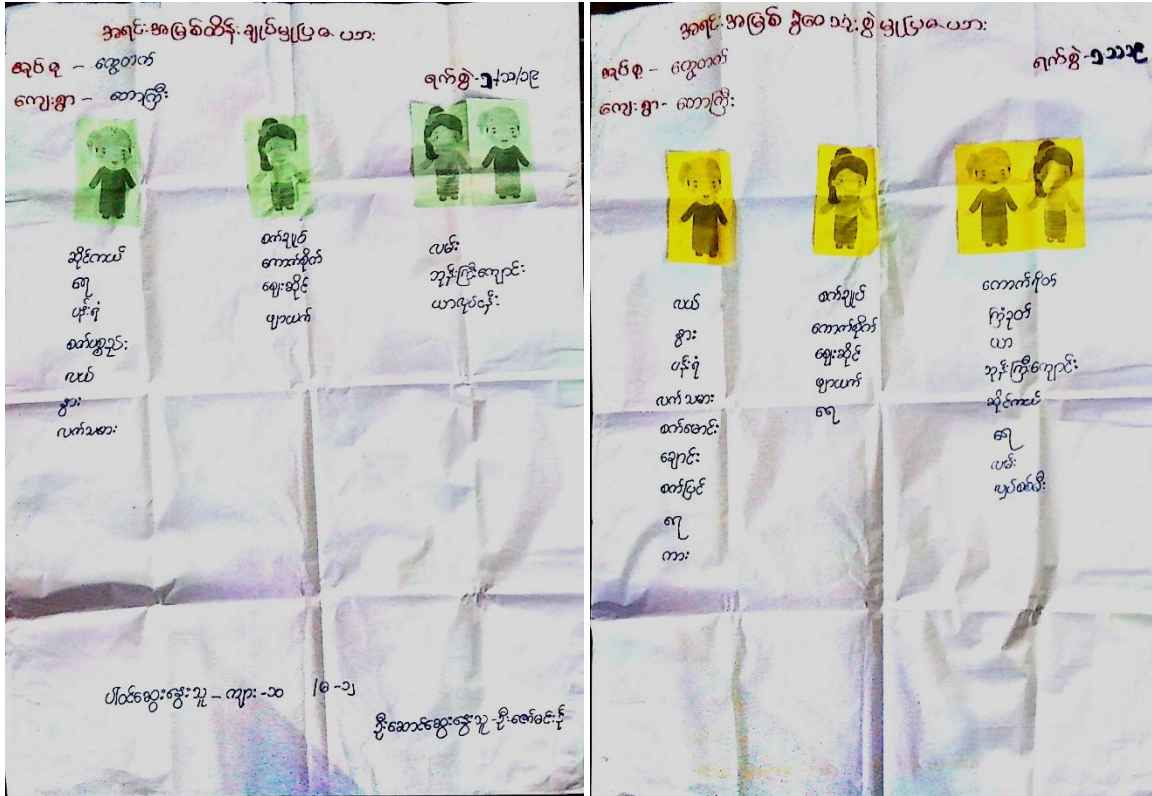 အရင်းအမြစ်ထိန်းချုပ်မှုပြဇယား
အုပ်စု - တွေတက်
ကျေးရွာ - တောကြီး
ဆိုင်ကယ်
ရေ
ပန်းရံ
စက်ပစ္စည်း
လယ်
နွား
လက်သမား
စက်ချုပ်
ကောက်စိုက်
ဈေးဆိုင်
ဖျာယက်
လမ်း
ဘုန်းကြီးကျောင်း
ယာလုပ်ငန်း
ပါဝင်ဆွေးနွေးသူ - ကျား - ၁၀ /မ - ၁၂
ဦးဆောင်ဆွေးနွေးသူ -
အရင်းအမြစ် ခွဲဝေသုံးစွဲမှုပြဇယား
အုပ်စု - တွေတက်
ကျေးရွာ - တောကြီး
လယ်
နွား
ပန်းရံ
လက်သမား
စက်မောင်း
ချောင်း
စက်ပြင်
ရေ
ကား
စက်ချုပ်
ကောက်စိုက်
ဈေးဆိုင်
ဖျာယက်
ရေ
ကောက်ရိတ်
ကြံခုတ်
ယာ
ဘုန်းကြီးကျောင်း
ဆိုင်ကယ်
ရေ
လမ်း
လျှပ်စစ်မီး